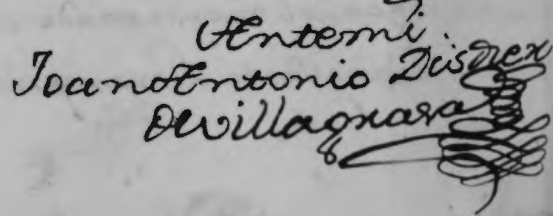 Antemi.
Joan Antonio Disdrex
De Villagrasa